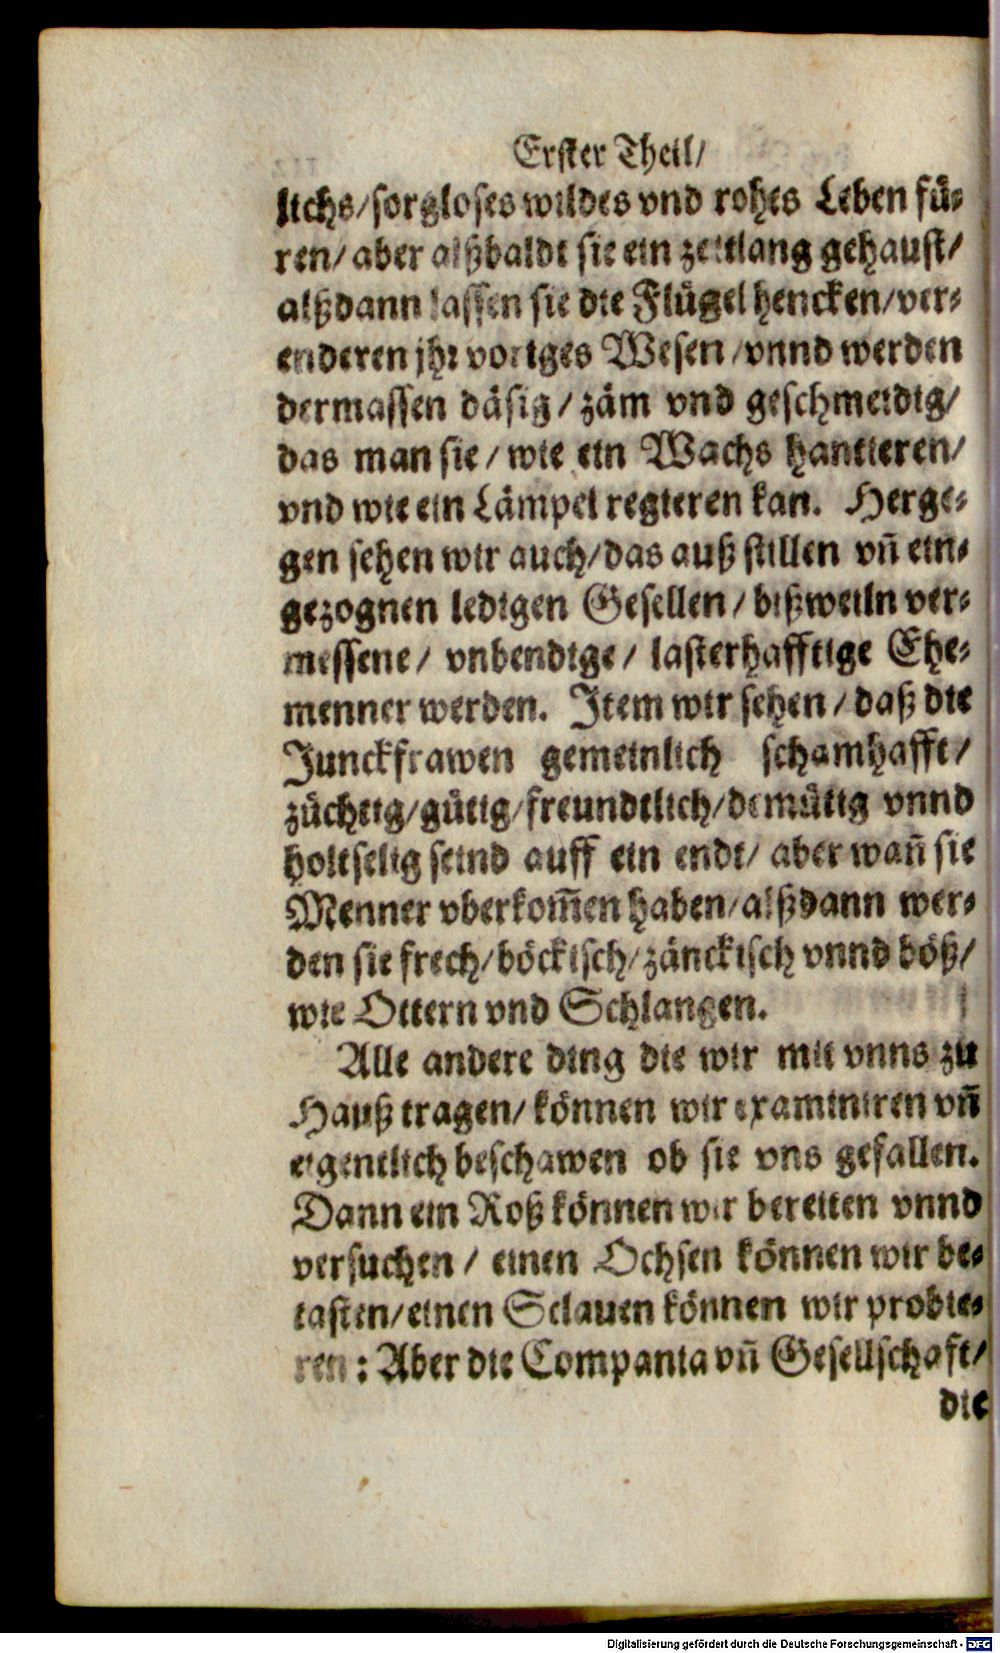 Erster Theil/
lichs/sorgloses wildes vnd rohes Leben fü-
ren/ aber alßbaldt sie ein zeitlang gehaust/
alßdann lassen sie die Flügel hencken/ver-
enderen jhr voriges Wesen /vnnd werden
dermassen däsig / zäm vnd geschmeidig/
das man sie / wie ein Wachs hantieren/
vnd wie ein Lämpel regieren kan. Herge-
gen sehen wir auch/das auß stillen vñ ein-
gezognen ledigen Gesellen / bißweiln ver-
messene/ vnbendige/ lasterhafftige Ehe-
menner werden. Item wir sehen / daß die
Junckfrawen gemeinlich schamhafft/
züchtig/gütig/freundtlich/demütig vnnd
holtselig seind auff ein endt/ aber wañ sie
Menner vberkom̃en haben/alßdann wer-
den sie frech/böckisch/zänckisch vnnd böß/
wie Ottern vnd Schlangen.
Alle andere ding die wir mit vnns zu
Hauß tragen/ können wir examiniren vñ
eigentlich beschawen ob sie vns gefallen.
Dann ein Roß können wir bereitten vnnd
versuchen / einen Ochsen können wir be-
tasten/einen Sclauen können wir probie-
ren : Aber die Compania vñ Gesellschaft/
die
Digitalisierung gefördert durch die Deutsche Forschungsgemeinschaft - DFG